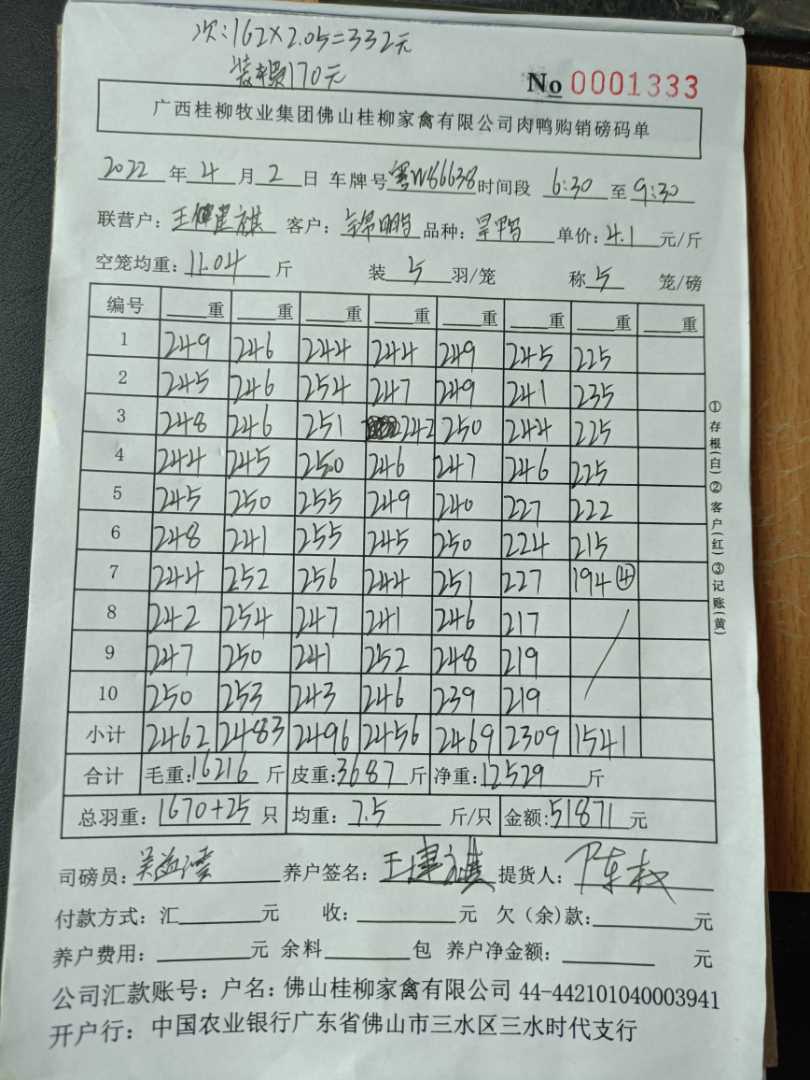 次:162×2.05=332元
装车费170元
No 0001333
广西桂柳牧业集团佛山桂柳家禽有限公司肉鸭购销磅码单
2022 年 4 月 2 日 车牌号 粤W86638 时间段 6:30 至 9:30
联营户: 王健 客户: 锦鹏 品种: 旱鸭 单价: 4.1 元/斤
空笼均重: 11.04 斤 装 5 羽/笼 称 5 笼/磅
编号 重 重 重 重 重 重 重 重
1 249 246 244 244 249 245 225
2 245 246 254 247 249 241 235
3 248 246 251 242 250 244 225
4 244 245 250 246 247 246 225
5 245 250 255 249 240 227 222
6 248 241 255 245 250 224 215
7 244 252 256 244 251 227 194 ④
8 242 254 247 241 246 217
9 247 250 241 252 248 219
10 250 253 243 246 239 219
小计 2462 2483 2496 2456 2469 2309 1541
合计 毛重: 16216 斤 皮重: 3687 斤 净重: 12529 斤
总羽重: 1670+25 只 均重: 7.5 斤/只 金额: 51871 元
①存根(白)②客户(红)③记账(黄)
司磅员: 养户签名: 王 提货人: 陈权
付款方式: 汇 元 收: 元 欠(余)款: 元
养户费用: 元 余料 包 养户净金额: 元
公司汇款账号: 户名: 佛山桂柳家禽有限公司 44-442101040003941
开户行: 中国农业银行广东省佛山市三水区三水时代支行